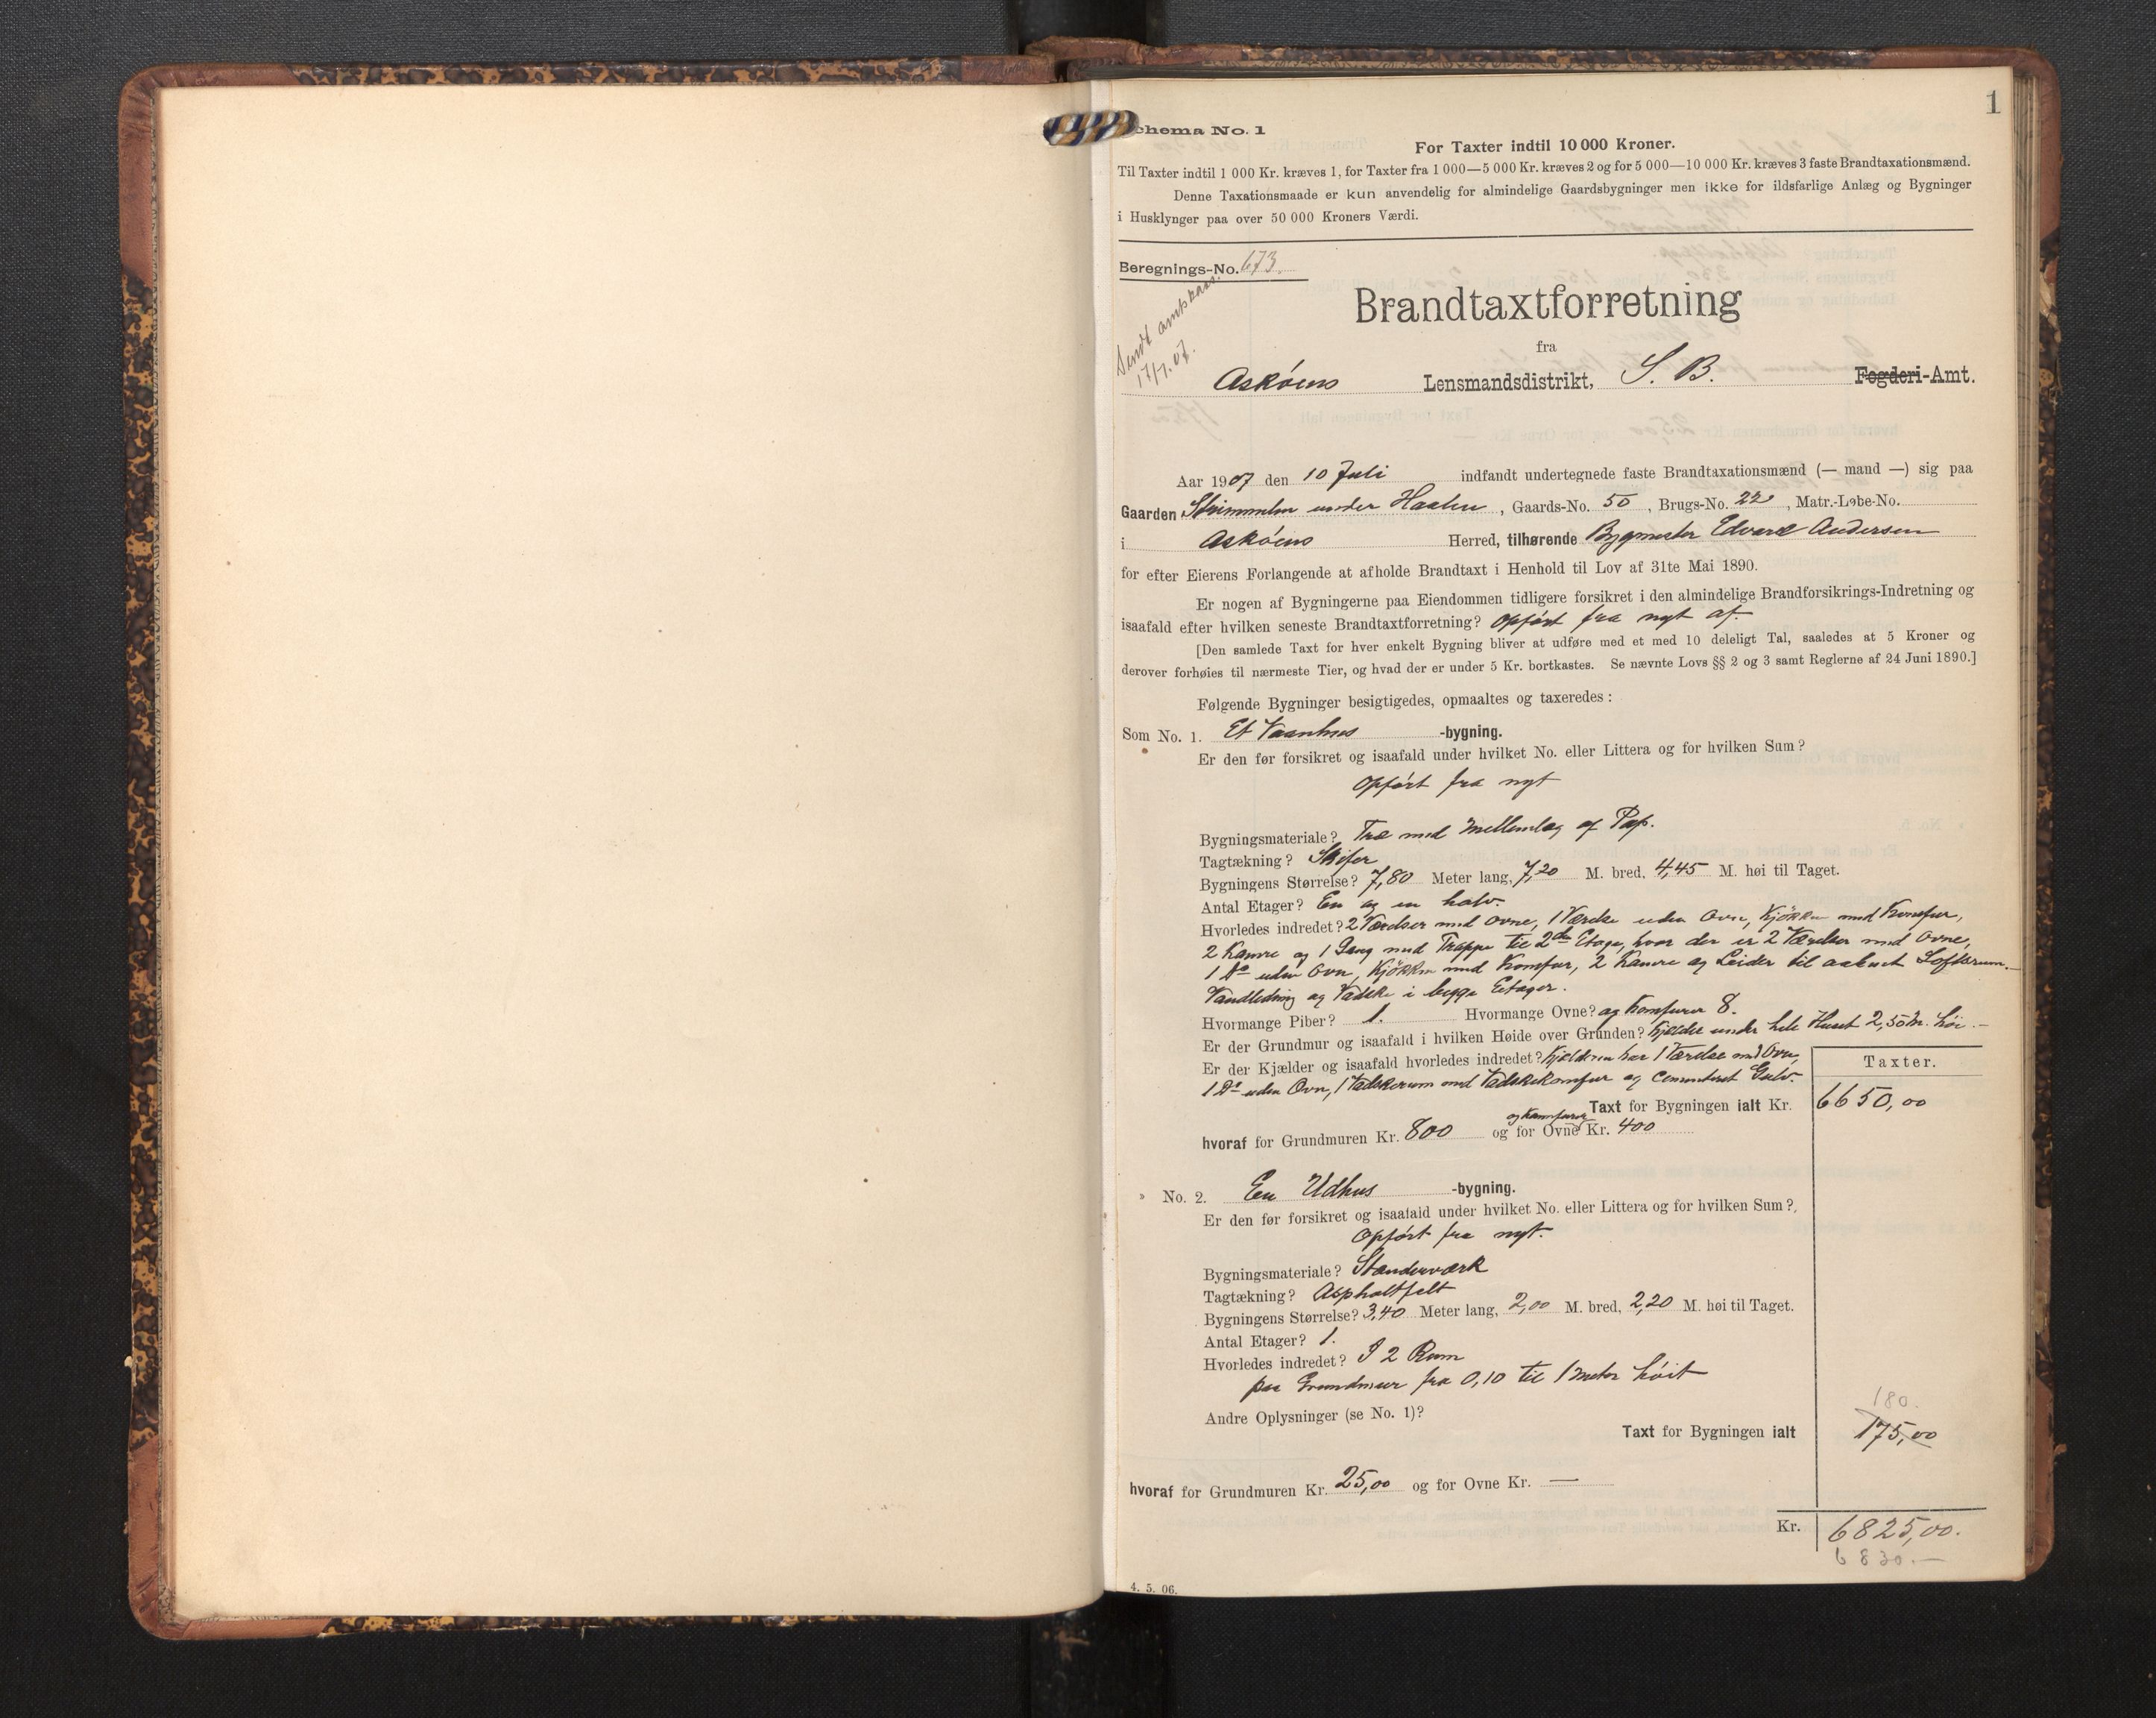 1
chema No. 1
For Taxter indtil 10 000 Kroner.
Til Taxter indtil 1 000 Kr. kræves 1, for Taxter fra 1 000—5 000 Kr. kræves 2 og for 5 000—10 000 Kr. kræves 3 faste Brandtaxationsmænd.
Denne Taxationsmaade er kun anvendelig for almindelige Gaardsbygninger men ikke for ildsfarlige Anlæg og Bygninger
i Husklynger paa over 50 000 Kroners Værdi.
Beregnings-No. 673.
Sendt amtskass.
17/7. 07.
Brandtaxtforretning
fra
Askøens Lensmandsdistrikt, S. B. Fogderi-Amt.
Aar 1907 den 10 Juli indfandt undertegnede faste Brandtaxationsmænd (— mand —) sig paa
Gaarden under , Gaards-No. 50 , Brugs-No. 22 , Matr.-Løbe-No.
i Askøens Herred, tilhørende Bygmester Edvard Andersen
for efter Eierens Forlangende at afholde Brandtaxt i Henhold til Lov af 31te Mai 1890.
Er nogen af Bygningerne paa Eiendommen tidligere forsikret i den almindelige Brandforsikrings-Indretning og
isaafald efter hvilken seneste Brandtaxtforretning? opført fra nyt af.
[Den samlede Taxt for hver enkelt Bygning bliver at udføre med et med 10 deleligt Tal, saaledes at 5 Kroner og
derover forhøies til nærmeste Tier, og hvad der er under 5 Kr. bortkastes. Se nævnte Lovs §§ 2 og 3 samt Reglerne af 24 Juni 1890.]
Følgende Bygninger besigtigedes, opmaaltes og taxeredes :
Som No. 1. Et Vaanhus -bygning.
Er den før forsikret og isaafald under hvilket No. eller Littera og for hvilken Sum ?
opført fra nyt
Bygningsmateriale? Træ med Mellemlag af Pap.
Tagtækning? Skifer
Bygningens Størrelse? 7,80 Meter lang, 7,20 M. bred, 4,45 M. høi til Taget.
Antal Etager? En og en halv.
Hvorledes indredet? 2 Værelser med Ovne, 1 Værelse uden Ovn, Kjøkken med Komfur,
2 Kamre og 1 Gang med Trappe til 2den Etage, hvor der er 2 Værelser med Ovne,
1 Do uden Ovn, Kjøkken med Komfur, 2 Kamre og Leider til aabent Loftsrum.—
Vandledning og Vadske i begge Etager.
Hvormange Piber? 1. Hvormange Ovne? og Komfurer 8.
Er der Grundmur og isaafald i hvilken Høide over Grunden? Kjelder under hele Huset 2,50 M. høi.—
Er der Kjælder og isaafald hvorledes indredet? Kjelderen har 1 Værelse med Ovn,
1 Do uden Ovn, 1 Vadskerum med Vadskekomfur og Cementeret Gulv.
Taxter.
Taxt for Bygningen ialt Kr. 6650,00
og Komfurer
hvoraf for Grundmuren Kr. 800 og for Ovne Kr. 400
» No. 2. En Udhus -bygning.
Er den før forsikret og isaafald under hvilket No. eller Littera og for hvilken Sum ?
Opført fra nyt.
Bygningsmateriale? Standerværk
Tagtækning? Asphaltfelt
Bygningens Størrelse? 3,40 Meter lang, 2,00 M. bred, 2,20 M. høi til Taget.
Antal Etager? 1.
Hvorledes indredet? I 2 Rum
paa Grundmur fra 0,10 til 1 meter høit
Andre Oplysninger (se No. 1)?
180.
Taxt for Bygningen ialt 175,00
hvoraf for Grundmuren Kr. 25,00 og for Ovne Kr. —
Kr. 6825,00.
6830.—
4. 5. 06.